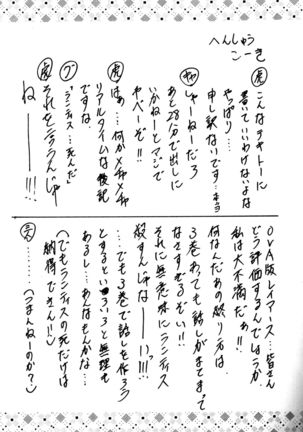 へんしゅう
こーき
虎 こんなテキトーに
書いていいわけないよな
やっぱり…
申し訳ないです…
しゃーねーだろ
あと28分で出しに
いかねーとマジで
ヤベーぞ!!
虎 はぁ…何かメチャメチャ
リアルタイムな後記
ですな。
ブ ランティス…死んだ
虎 それを言うんじゃ
ねー———!!!
OVA版レイアース…皆さん
どう評価するんでしょうか。
私は大不満だぁ!!
何なんだあの終り方は。
3巻あっても話しがまとまって
なさすぎるぞぃ!!
それに無意味にランティス
殺すんじゃなーーいっ!!!
…でも3巻で話しを作ろう
とするといろいろと無理も
あるし…あんなもんかな…
(でもランティスの死だけは
納得できん!!)
……(つまんねーのか?)